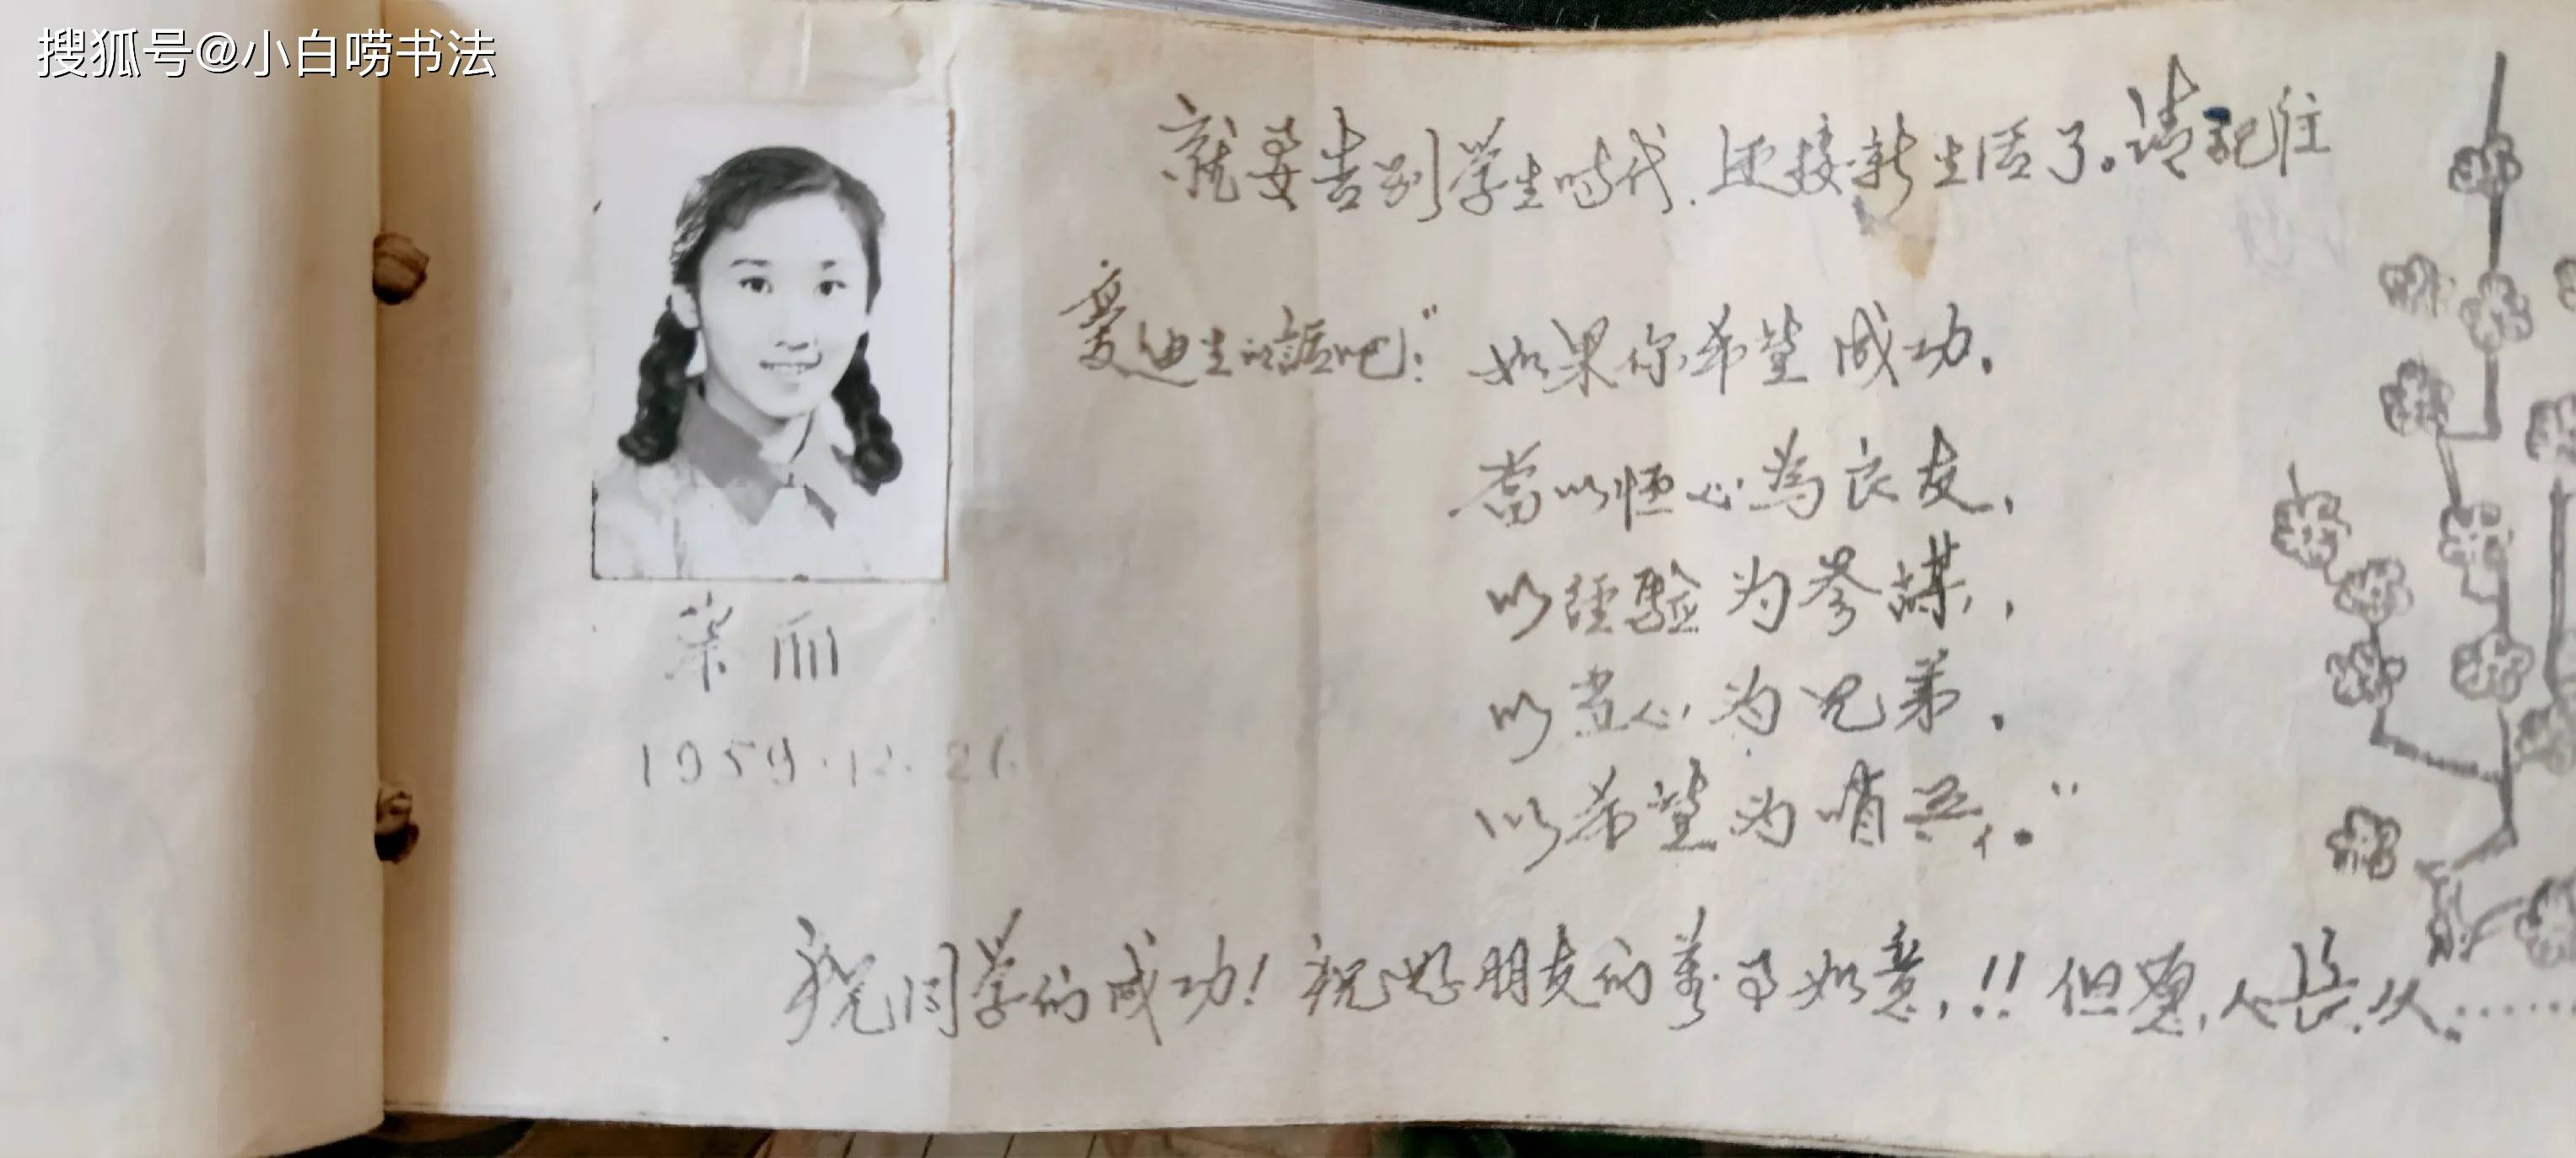 搜狐号@小白唠书法
就要告别学生时代.迎接新生活了。请記住
爱迪生的話吧：“如果你希望成功，
当以恒心為良友，
以经驗为参謀，
以当心为兄弟，
以希望为哨兵。”
丽
1959.12.26
祝同学的成功！祝好朋友的万事如意，!!但愿，人长久……